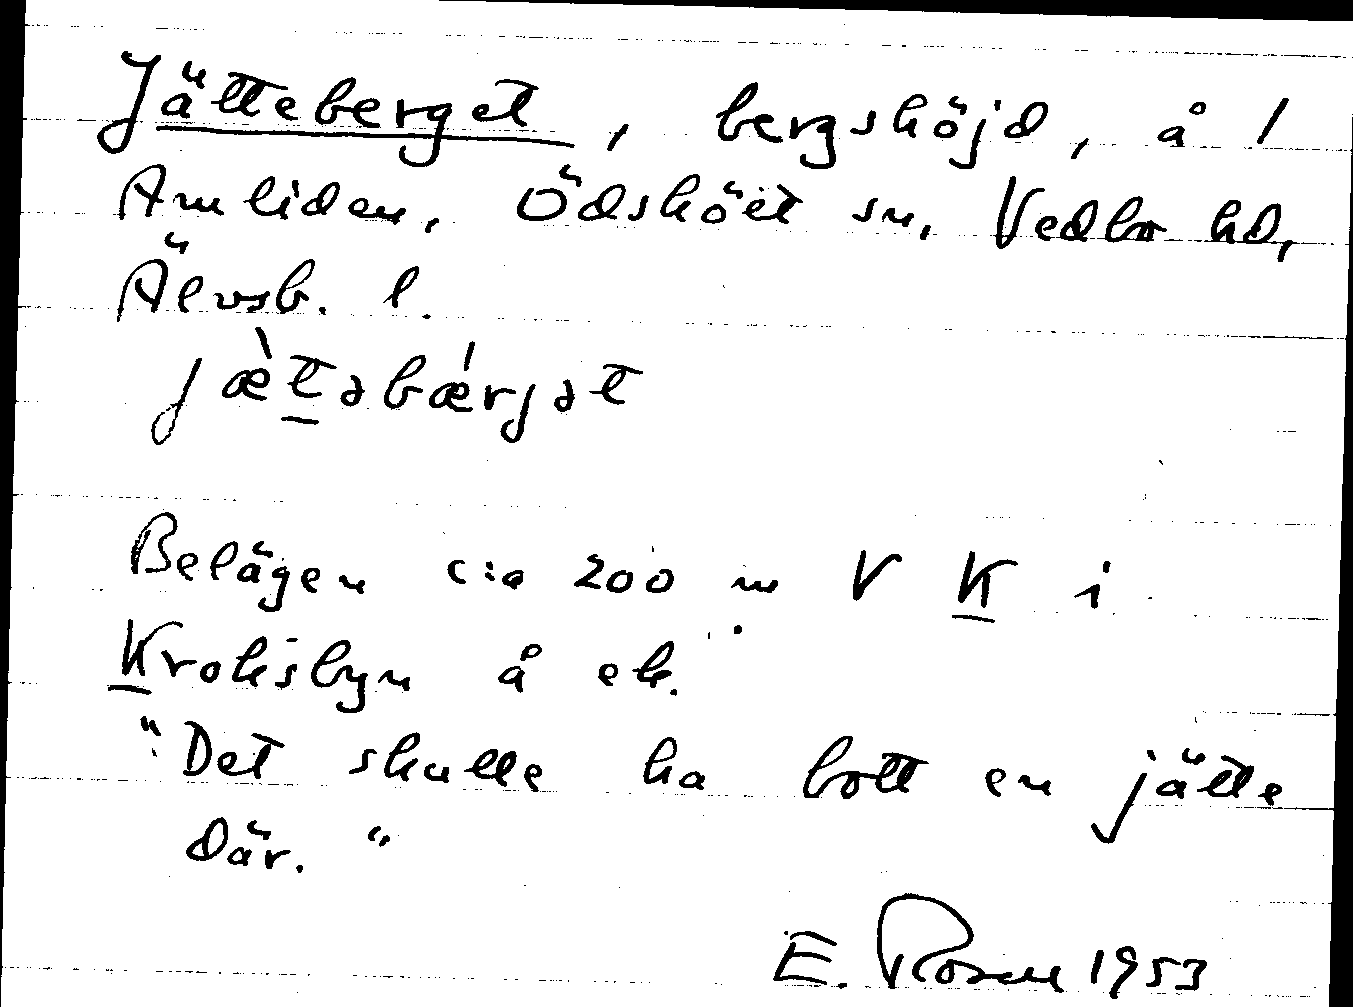 Jätteberget, bergshöjd, å /
Amliden, Ödsköët sn, Vedbo hd,
Älvsb. l.
jæ̀t̲əbǽrjət
Belägen c:a 200 m V K i
Kroksbyn å ek.
"Det skulle ha bott en jätte
där."
E. Rosen 1953